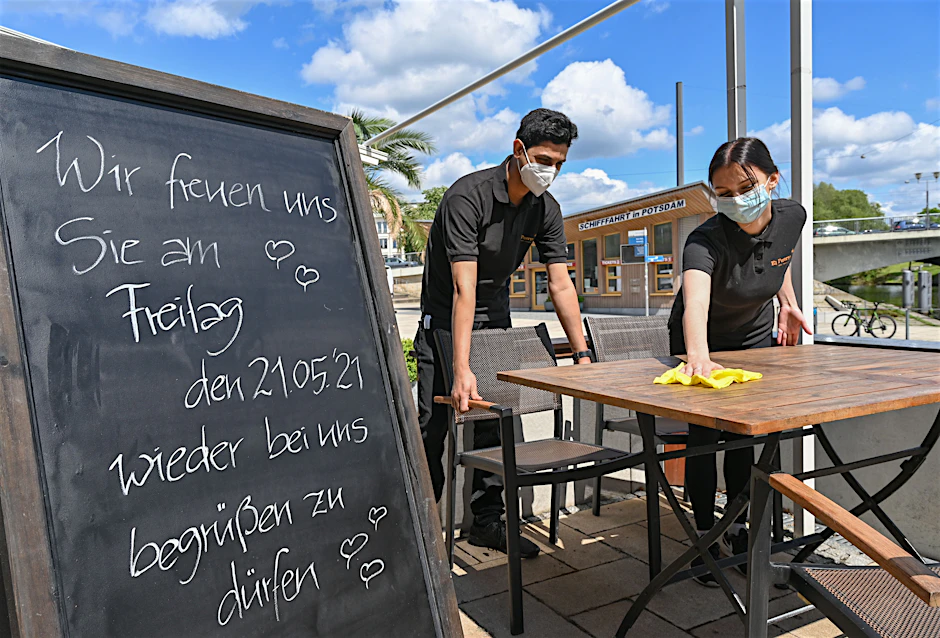 Wir freuen uns
Sie am
Freitag
den 21.05.'21
wieder bei uns
begrüßen zu
dürfen
SCHIFFFAHRT in POTSDAM